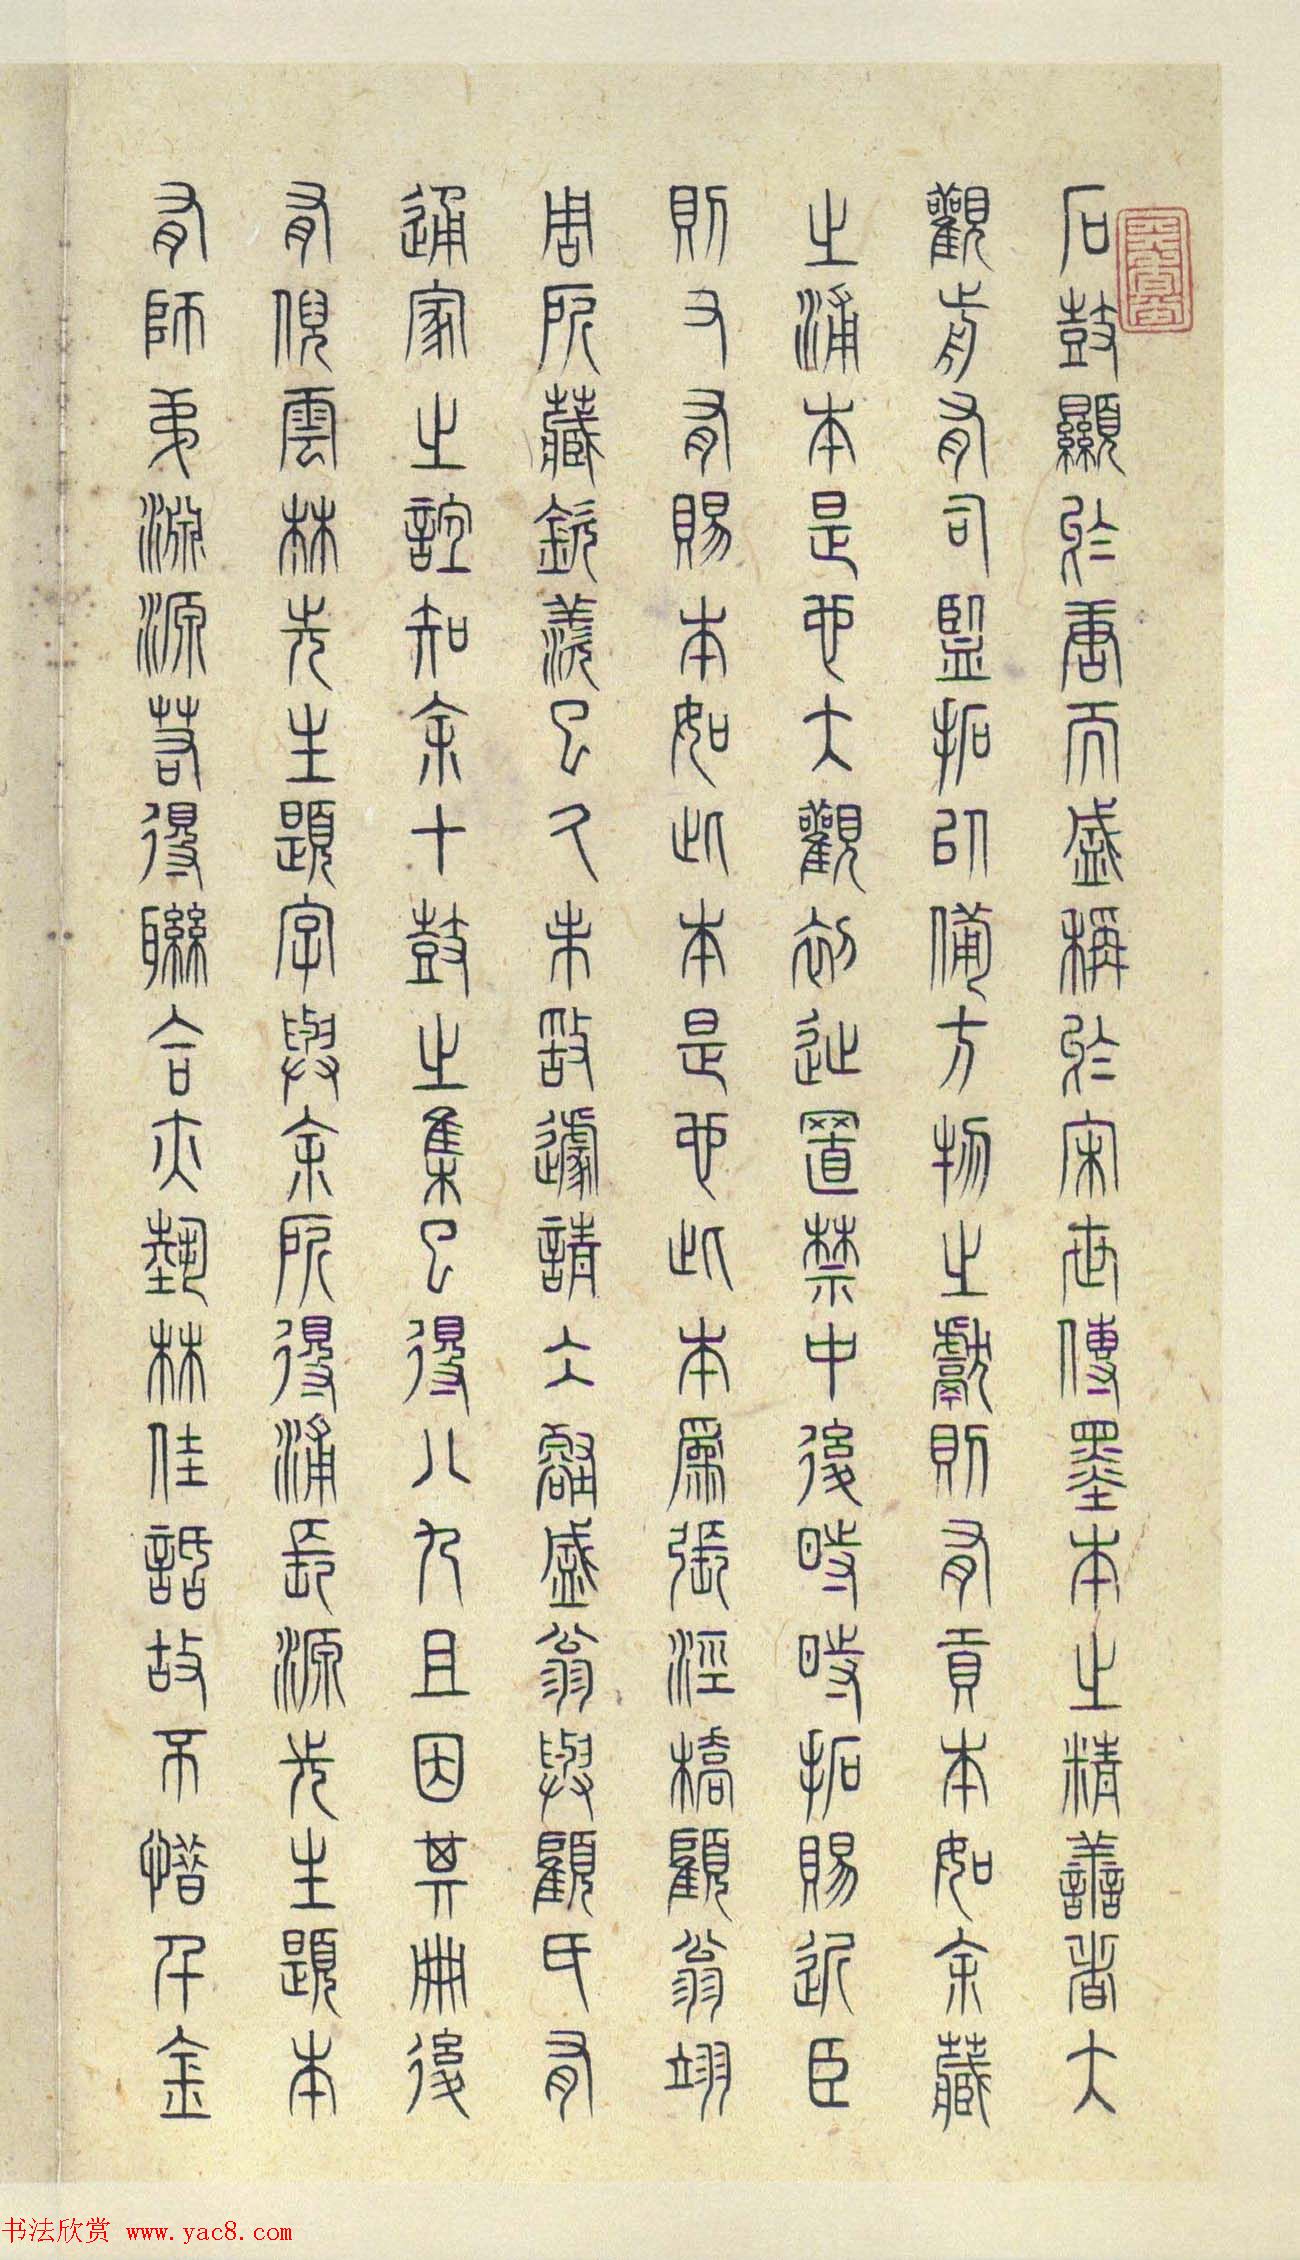 石鼓顯於唐而盛稱於宋世傳墨本之精善者大
觀前有司監拓以備方物之獻則有貢本如余藏
之浦本是也大觀初迆置禁中後時時拓賜近臣
則又有賜本如此本是也此本屬張涇橋顧翁翊
周所藏欽羨已久未敢遽請亼磬盛翁與顧氏有
通家之誼知余十鼓之集已得八九且因其冊後
有倪雲林先生題字與余所得浦長源先生題本
有師弟淵源若得聯合亦藝林佳話故不惜千金
书法欣赏 www.yac8.com